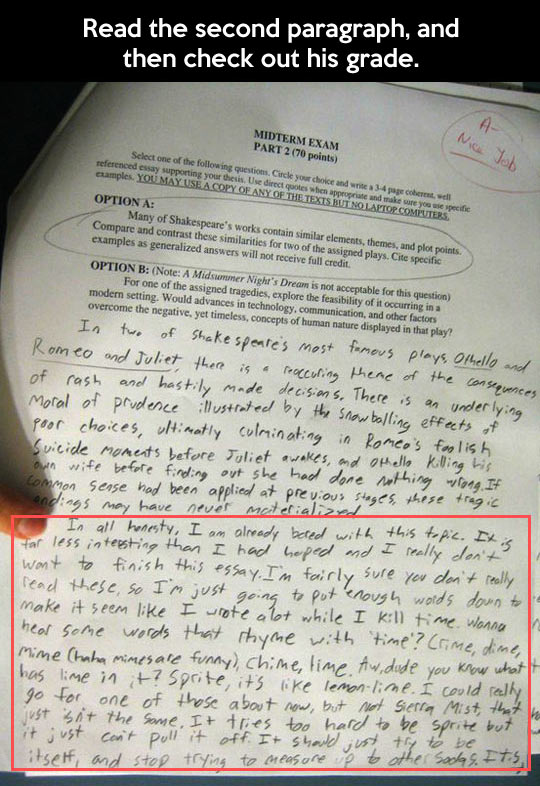 Read the second paragraph, and
then check out his grade.
A-
Nice Job
MIDTERM EXAM
PART 2 (70 points)
Select one of the following questions. Circle your choice and write a 3-4 page coherent, well
referenced essay supporting your thesis. Use direct quotes when appropriate and make sure you use specific
examples. YOU MAY USE A COPY OF ANY OF THE TEXTS BUT NO LAPTOP COMPUTERS.
OPTION A:
Many of Shakespeare's works contain similar elements, themes, and plot points.
Compare and contrast these similarities for two of the assigned plays. Cite specific
examples as generalized answers will not receive full credit.
OPTION B: (Note: A Midsummer Night's Dream is not acceptable for this question)
For one of the assigned tragedies, explore the feasibility of it occurring in a
modern setting. Would advances in technology, communication, and other factors
overcome the negative, yet timeless, concepts of human nature displayed in that play?
In two of Shakespeare's most famous plays, Othello and
Romeo and Juliet, there is a reoccuring theme of the consequences
of rash and hastily made decisions. There is an underlying
moral of prudence illustrated by the snowballing effects of
poor choices, ultimatly culminating in Romeo's foolish
suicide moments before Juliet awakes, and Othello killing his
own wife before finding out she had done nothing wrong. If
common sense had been applied at previous stages, these tragic
endings may have never materialized
In all honesty, I am already bored with this topic. It is
far less interesting than I had hoped and I really don't
want to finish this essay. I'm fairly sure you don't really
read these, so I'm just going to put enough words down to
make it seem like I wrote alot while I kill time. Wanna
hear some words that rhyme with 'time'? Crime, dime,
mime (haha mimes are funny), chime, lime. Aw, dude you know what
has lime in it? Sprite, it's like lemon-lime. I could really
go for one of those about now, but not Sierra Mist, that
just isn't the same. It tries too hard to be sprite but
it just can't pull it off. It should just try to be
itself, and stop trying to measure up to other sodas. It is,